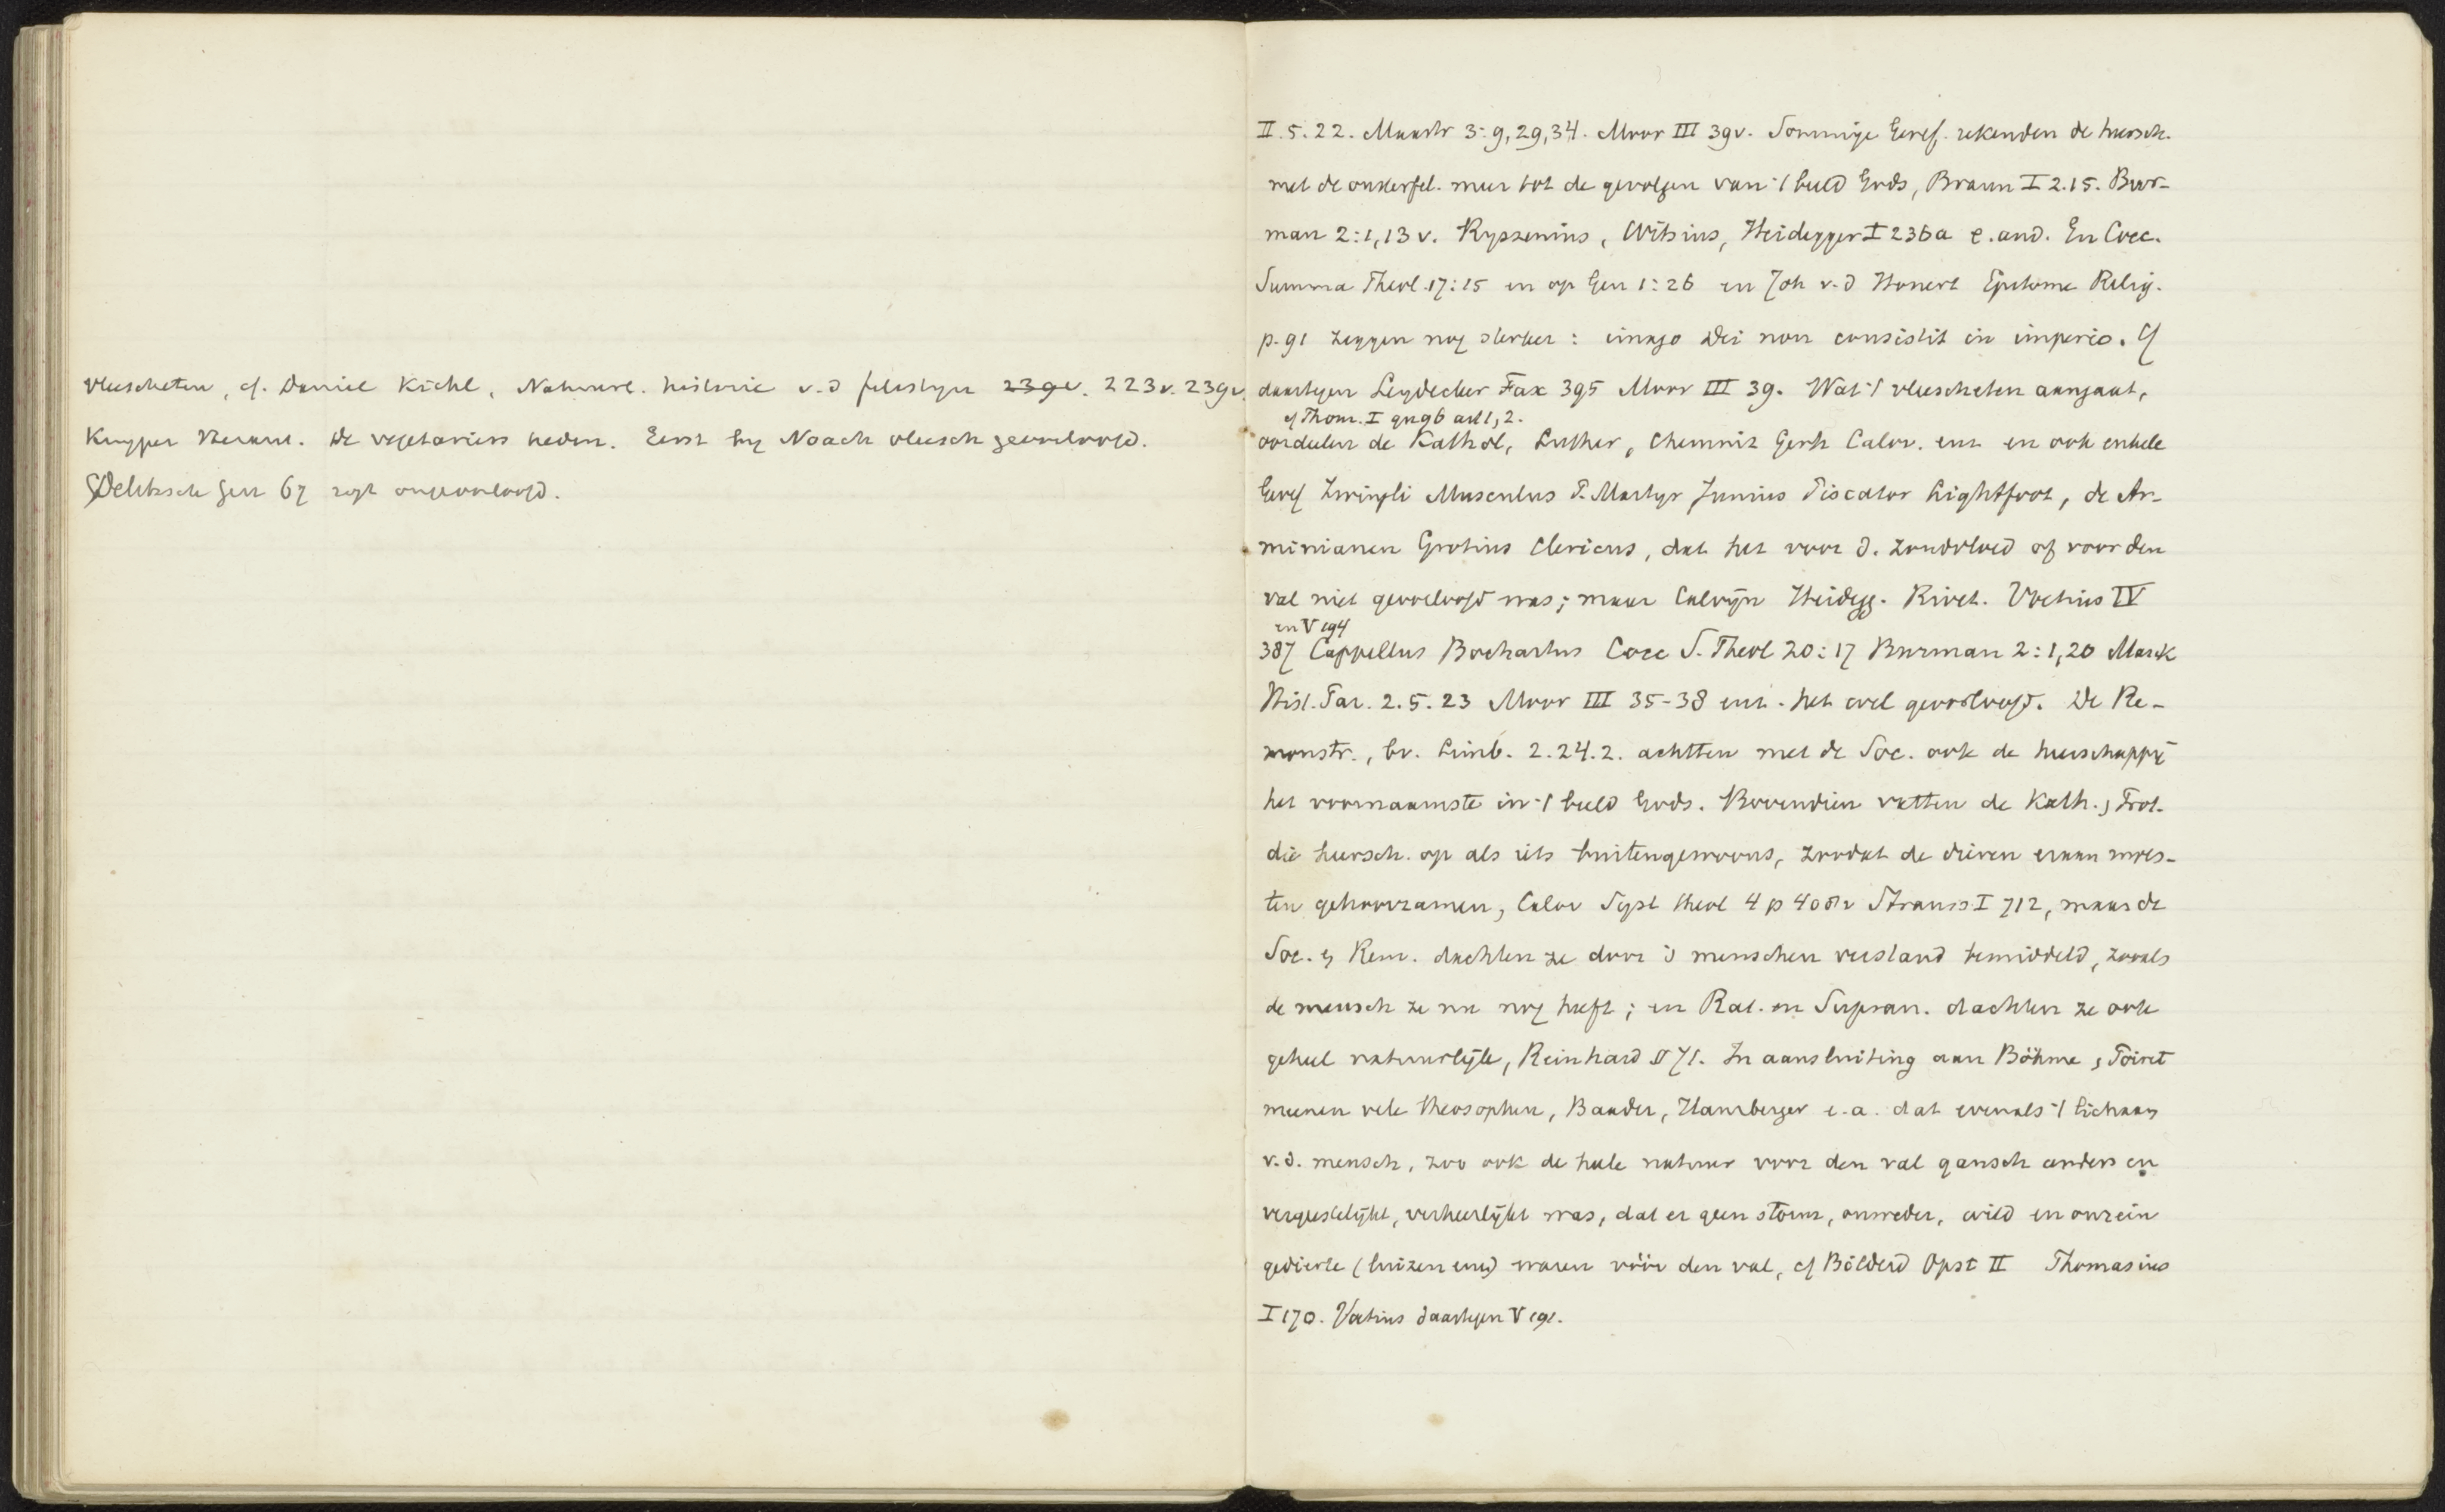 vleescheten, cf. Daniel Kichl, Natuurl. historie v. d 239v. 223v. 239v.
Kuyper Heraut. De vegetariers heden. Eerst bij Noach vleesch geoorloofd.
Delitzsch Gen 67 zegt ongeoorloofd.
II. 5. 22. Maastr 3: 9, 29, 34. Moor III 39v. Sommige Geref. rekenden de heersch.
met de onsterfel. meer tot de gevolgen van 't beeld Gods, Braun I 2.15. Bur-
man 2:1,13 v. Ryssenius, Witsius, Heidegger I 236a e. and. En Cocc.
Summa Theol. 17:15 en op Gen 1:26 en Joh v. d Honert Epitome Relig.
p. 91 zeggen nog sterker: imago Dei non consistit in imperio. Cf
daartegen Leydecker Fax 395 Moor III 39. Wat 't vleescheten aangaat,
cf Thom. I qu 96 art 1, 2.
oordeelen de Kathol, Luther, Chemniz Gerh Calov. enz en ook enkele
Geref Zwingli Musculus P. Martyr Junius Piscator Lightfoot, de Ar-
minianen Grotius Clericus, dat het voor d. zondvloed of voor den
val niet geoorloofd was; maar Calvijn Heidegg. Rivet. Voetius IV
en V 194
387 Cappellus Bochartus Cocc S. Theol 20:17 Burman 2:1,20 Marck
Hist. Par. 2. 5. 23 Moor III 35-38 enz. het wel geoorloofd. De Re-
monstr., bv. Limb. 2. 24. 2. achtten met de Soc. ook de heerschappij
het voornaamste in 't beeld Gods. Bovendien vatten de Kath. en Prot.
die heersch. op als iets buitengewoons, zoodat de dieren eraan moes-
ten gehoorzamen, Calov Syst theol 4 p Strauss I 712, maar de
Soc. en Rem. dachten ze door 's menschen verstand bemiddeld, zooals
de mensch ze nu nog heeft; en Rat. en Supran. dachten ze ook
geheel natuurlijk, Reinhard § 71. In aansluiting aan Böhme en Poiret
meenen vele theosophen, Baader, Hamberger e. a. dat evenals 't lichaam
v. d. mensch, zoo ook de heele natuur voor den val gansch anders en
vergeestelijkt, verheerlijkt was, dat er geen storm, onweder, wild en onrein
gedierte (luizen enz) waren vóór den val, cf Bilderd Opst II Thomasius
I 170. Voetius daartegen V 191.